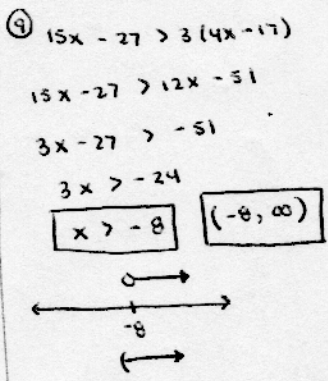 9 15x - 27 > 3(4x - 17)
15x - 27 > 12x - 51
3x - 27 > -51
3x > -24
x > -8 (-8, ∞)
-8